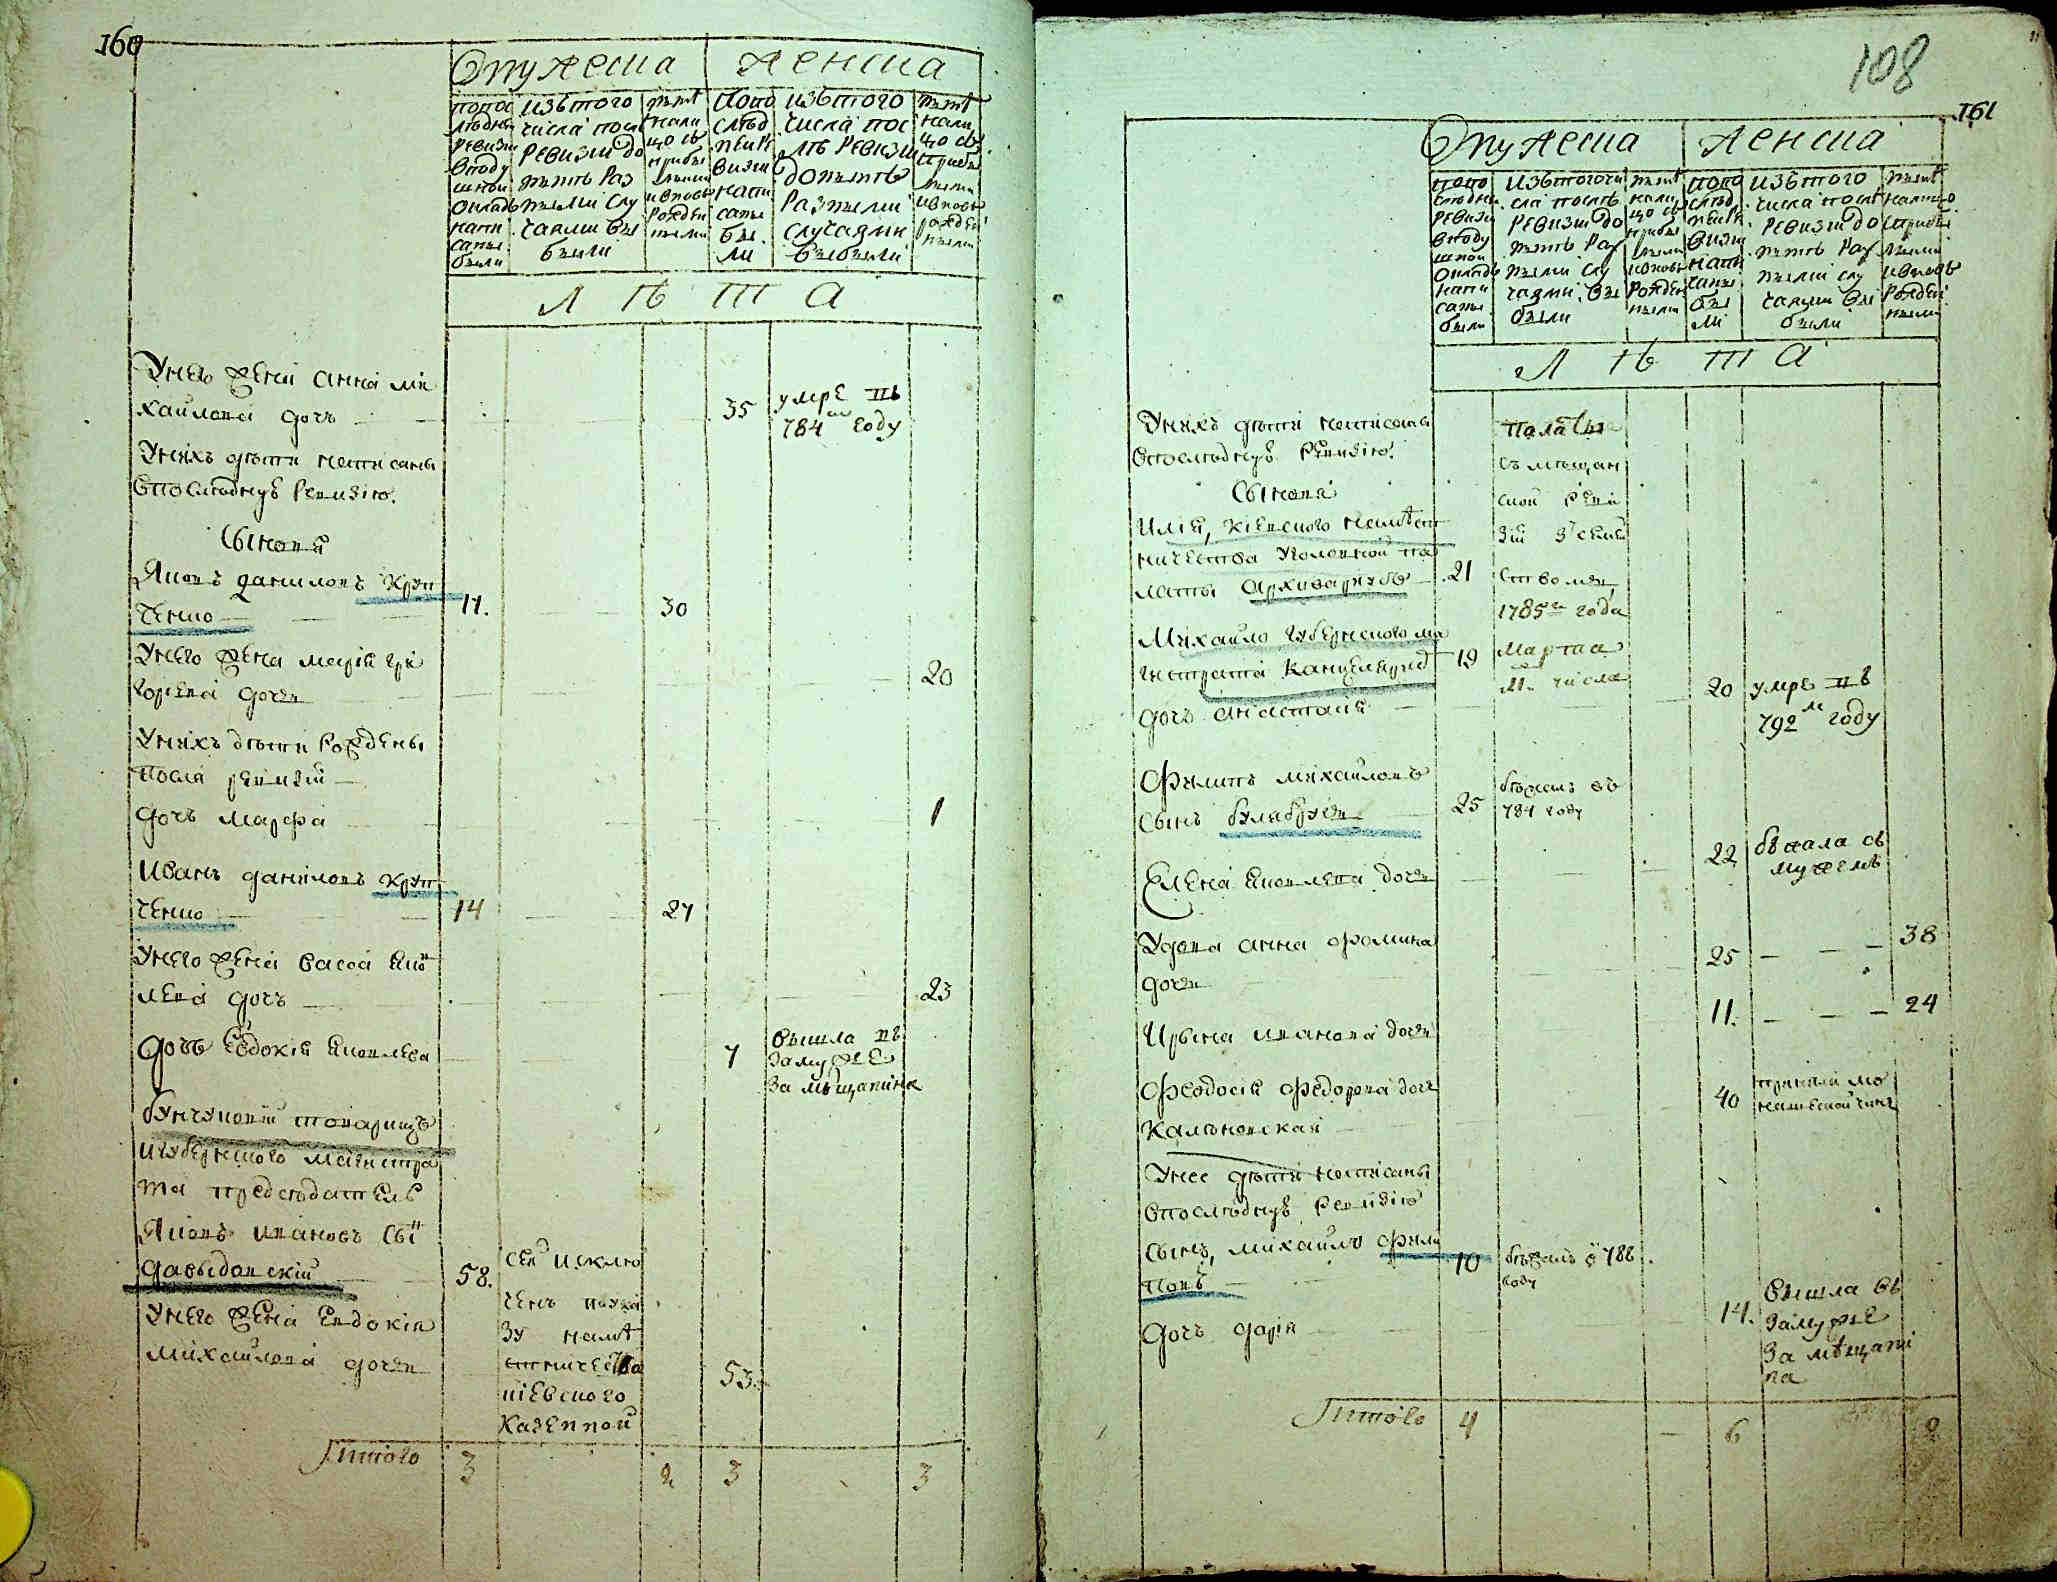 160
Мужеска
Женска
попос
лѣдней
ревизи
в поду
шной
окладъ
напи
саны
были
изъ того
числа посл
ревизии до
нынѣ раз
ными слу
чаями вы
были
нынѣ
нали
цо съ
прибы
лыми
и вновь
рожден
ными
попо
слѣд
ней ре
визии
напи
саны
бы
ли
изъ того
числа пос
лѣ ревизии
до нынѣ
разными
случаями
выбыли
нынѣ
нали
цо съ
прибы
лыми
и вновь
рожден
ными
Л Ѣ Т А
У него жена анна ми
хайлова дочь 35 умре въ
784м году
У нихъ дѣти написаны
в последную ревизию.
Сыновя
Яковъ даниловъ Круп
ченко 17. 30
У него жена мария гри
горьева дочь 20
У нихъ дѣти рождены
после ревизии
дочь марфа 1
Иванъ даниловъ круп
ченко 14 27
У него жена васса яко
лева дочь 23
дочь Евдокия яковлева 7 вышла въ
замужье
за мѣщанина
бунчуковий товарищъ
и губернского магистра
та председатель
Яковъ ивановъ сынъ
давыдовский 58. сей исклю
ченъ по ука
зу намѣ
стничества
киевского
казенной
У него жена евдокия
михайлова дочь 53.
Итого 3 2 3 3
108
161
Мужеска
Женска
попо
следней
ревизи
в поду
шной
окладъ
напи
саны
были
изъ того чи
сла послѣ
ревизии до
нынѣ раз
ными слу
чаями вы
были
нынѣ
нали
цо съ
прибы
лыми
и вновь
рожден
ными
попо
слѣд
ней ре
визии
напи
саны
бы
ли
изъ того
числа послѣ
ревизии до
нынѣ раз
ными слу
чаями вы
были
нынѣ
налицо
с прибы
лыми
и вновь
рожден
ными
Л Ѣ Т А
У нихъ дѣти написаны
в последную ревизию.
Сыновя
Илия, киевского намѣст
ничества уголовной па
латы архивариусъ 21
Михайло губернского ма
гистрата канцеляристъ 19
палаты
съ мѣщан
ской реви
зии
1785го года
марта
числа
дочь анастасия 20 умре въ
792м году
Филипъ михайловъ
сынъ 25 бежалъ въ
784 году
Елена яковлева дочь 22 бежала съ
мужемъ
Удова анна фомина
дочь 25 38
Ирина иванова дочь 11. 24
Феодосия федорова дочь
Кальновская 40
У нее дѣти написаны
в последную ревизию
сынъ, михайло фили
повъ 10 бѣжалъ в 786
году
дочь дария 14. вышла въ
замужье
за мѣщани
на
Итого 4 6 2